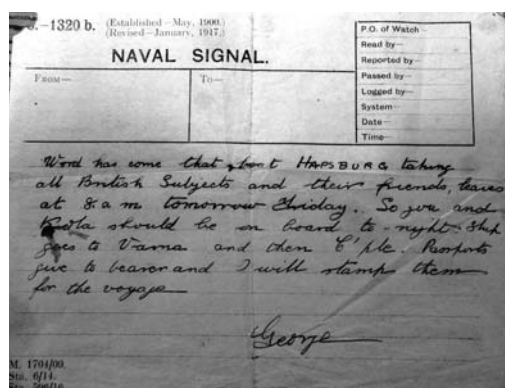 S.–1320 b. (Established–May, 1900.)
(Revised–January, 1917.)
NAVAL SIGNAL.
P.O. of Watch–
Read by–
Reported by–
Passed by–
Logged by–
System–
Date–
Time–
From–
To–
Word has come that boat HAPSBURG taking
all British Subjects and their friends, leaves
at 8 a m tomorrow Friday. So you and
should be on board to-night. Ship
goes to Varna and then C'ple. Passports
give to bearer and I will stamp them
for the voyage
George
M. 1704/00.
Sta. 6/14.
Sta.